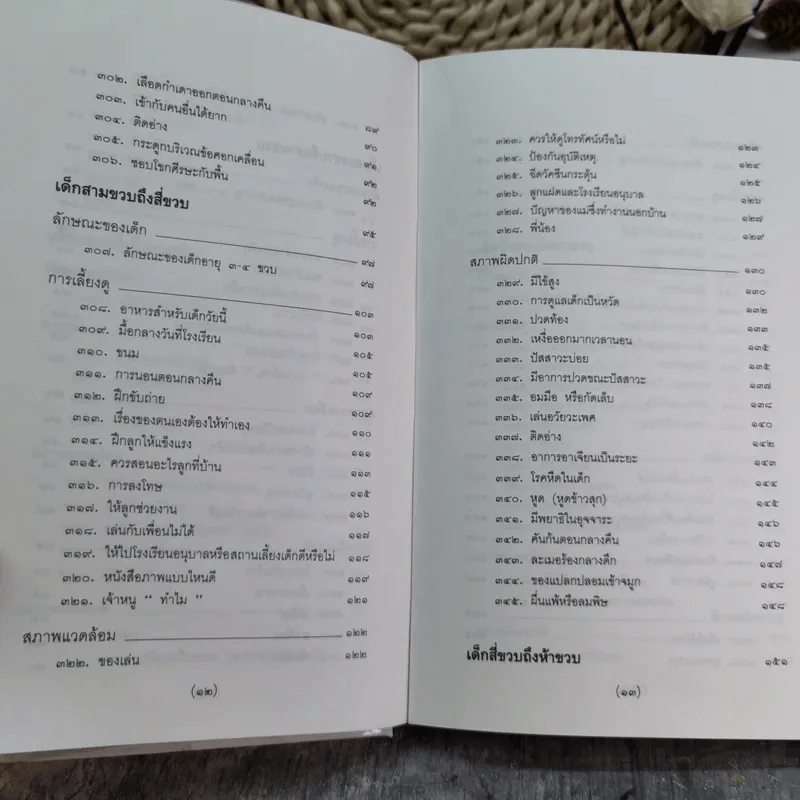 ๓๐๒. เลือดกำเดาออกตอนกลางคืน ๘๙
๓๐๓. เข้ากับคนอื่นได้ยาก ๙๐
๓๐๔. ติดอ่าง ๙๑
๓๐๕. กระดูกบริเวณข้อศอกเคลื่อน ๙๒
๓๐๖. ชอบโขกศีรษะกับพื้น ๙๒
เด็กสามขวบถึงสี่ขวบ ๙๕
ลักษณะของเด็ก ๙๗
๓๐๗. ลักษณะของเด็กอายุ ๓-๔ ขวบ ๙๗
การเลี้ยงดู ๑๐๓
๓๐๘. อาหารสำหรับเด็กวัยนี้ ๑๐๓
๓๐๙. มื้อกลางวันที่โรงเรียน ๑๐๕
๓๑๐. ขนม ๑๐๕
๓๑๑. การนอนตอนกลางคืน ๑๐๙
๓๑๒. ฝึกขับถ่าย ๑๐๙
๓๑๓. เรื่องของตนเองต้องให้ทำเอง ๑๑๐
๓๑๔. ฝึกลูกให้แข็งแรง ๑๑๑
๓๑๕. ควรสอนอะไรลูกที่บ้าน ๑๑๓
๓๑๖. การลงโทษ ๑๑๕
๓๑๗. ให้ลูกช่วยงาน ๑๑๖
๓๑๘. เล่นกับเพื่อนไม่ได้ ๑๑๗
๓๑๙. ให้ไปโรงเรียนอนุบาลหรือสถานเลี้ยงเด็กดีหรือไม่ ๑๑๘
๓๒๐. หนังสือภาพแบบไหนดี ๑๑๙
๓๒๑. เจ้าหนู “ ทำไม ” ๑๒๑
สภาพแวดล้อม ๑๒๒
๓๒๒. ของเล่น ๑๒๒
(๑๒)
๓๒๓. ควรให้ดูโทรทัศน์หรือไม่ ๑๒๓
๓๒๔. ป้องกันอุบัติเหตุ ๑๒๔
๓๒๕. ฉีดวัคซีนกระตุ้น ๑๒๕
๓๒๖. ลูกแฝดและโรงเรียนอนุบาล ๑๒๖
๓๒๗. ปัญหาของแม่ซึ่งทำงานนอกบ้าน ๑๒๗
๓๒๘. พี่น้อง ๑๒๙
สภาพผิดปกติ ๑๓๐
๓๒๙. มีไข้สูง ๑๓๐
๓๓๐. การดูแลเด็กเป็นหวัด ๑๓๒
๓๓๑. ปวดท้อง ๑๓๓
๓๓๒. เหงื่อออกมากเวลานอน ๑๓๕
๓๓๓. ปัสสาวะบ่อย ๑๓๕
๓๓๔. มีอาการปวดขณะปัสสาวะ ๑๓๗
๓๓๕. อมมือ หรือกัดเล็บ ๑๓๘
๓๓๖. เล่นอวัยวะเพศ ๑๔๐
๓๓๗. ติดอ่าง ๑๔๒
๓๓๘. อาการอาเจียนเป็นระยะ ๑๔๓
๓๓๙. โรคหืดในเด็ก ๑๔๔
๓๔๐. หูด (หูดข้าวสุก) ๑๔๕
๓๔๑. มีพยาธิในอุจจาระ ๑๔๖
๓๔๒. คันก้นตอนกลางคืน ๑๔๖
๓๔๓. ละเมอร้องกลางดึก ๑๔๗
๓๔๔. ของแปลกปลอมเข้าจมูก ๑๔๘
๓๔๕. ผื่นแพ้หรือลมพิษ ๑๔๘
เด็กสี่ขวบถึงห้าขวบ ๑๕๑
(๑๓)